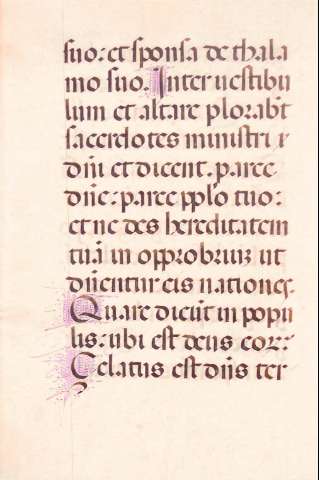 suo: et sponsa de thala
mo suo. Inter uestibu
lum et altare plorabt̄
sacerdotes ministri
dn̄i et dicent. parce
dn̄e: parce pplo tuo:
et ne des hereditatem
tuā in opprobriuʒ ut
dn̄entur eis nationes.
Quare dicūt in popu
lis: ubi est deus eor:
Zelatus est dn̄s ter